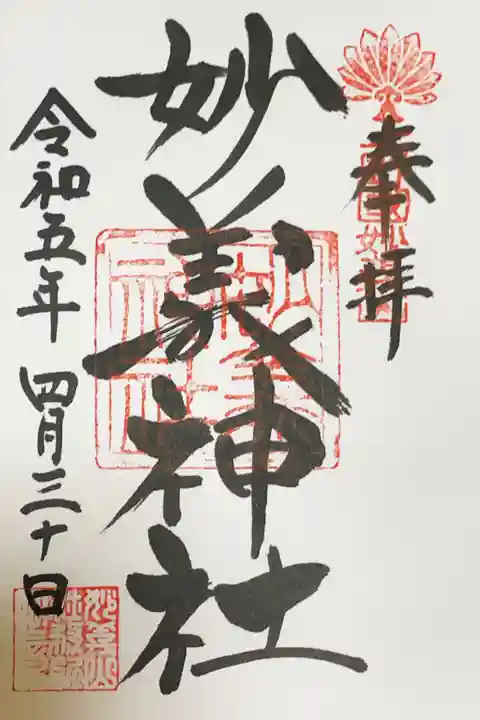 奉拝
妙義神社
令和五年四月三十日